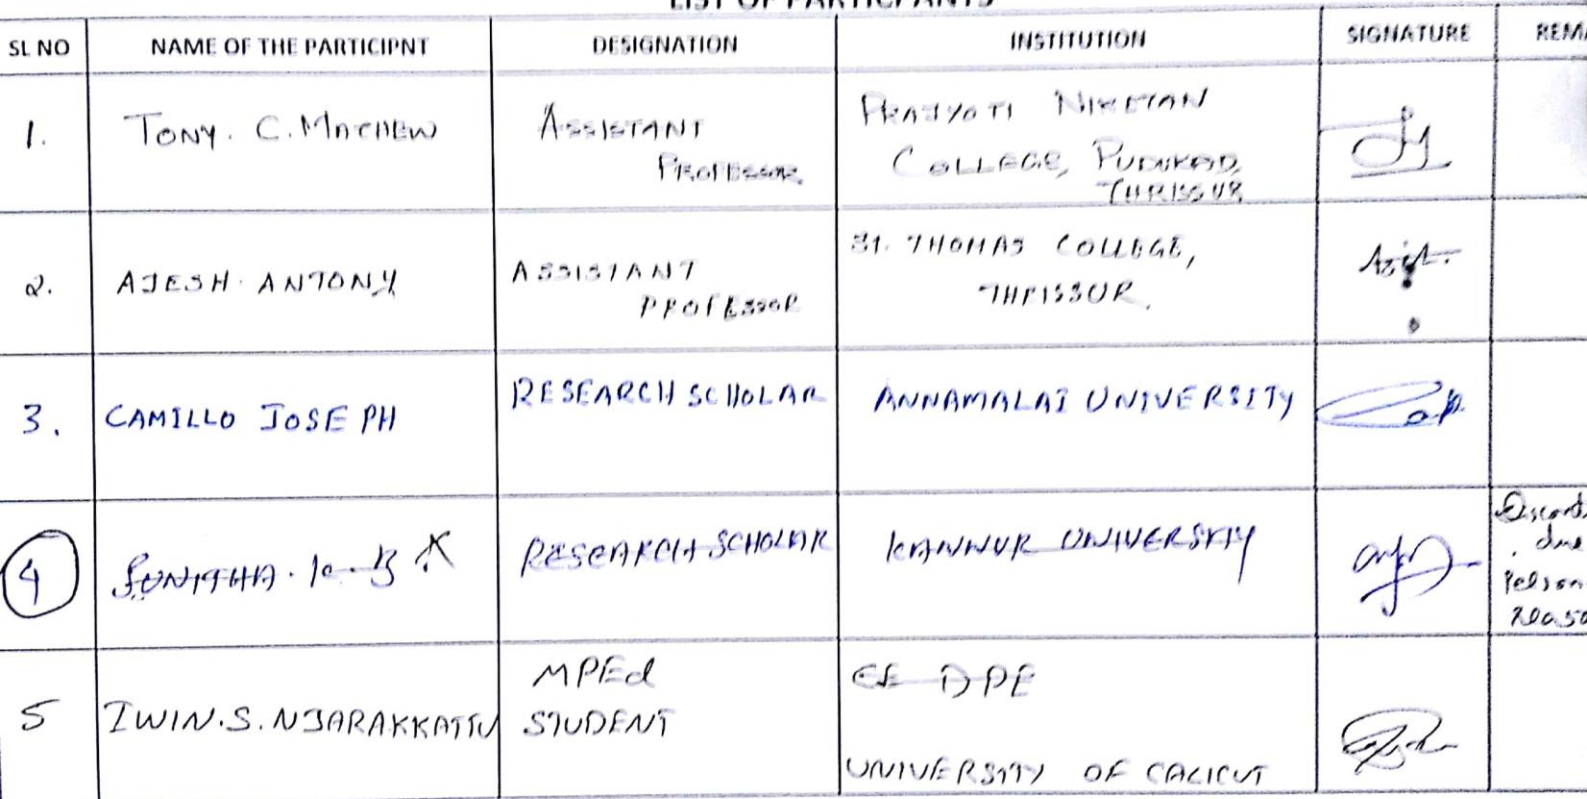 LIST OF PARTICPANTS
SL NO NAME OF THE PARTICIPNT DESIGNATION INSTITUTION SIGNATURE REMA
1. TONY. C. MATHEW ASSISTANT PROFESSOR PRAJYOTI NIKETAN
COLLEGE, PUDUKAD,
THRISSUR
2. AJESH ANTONY ASSISTANT PROFESSOR ST. THOMAS COLLEGE,
THRISSUR.
3. CAMILLO JOSEPH RESEARCH SCHOLAR ANNAMALAI UNIVERSITY
4 SUNITHA. RESEARCH SCHOLAR KANNUR UNIVERSITY
due
Person
Reaso
5 IWIN.S.NJARAKKATTU MPEd
STUDENT
DPE
UNIVERSITY OF CALICUT